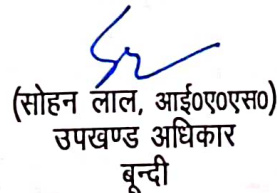 (सोहन लाल, आई०ए०एस०)
उपखण्ड अधिकार
बून्दी